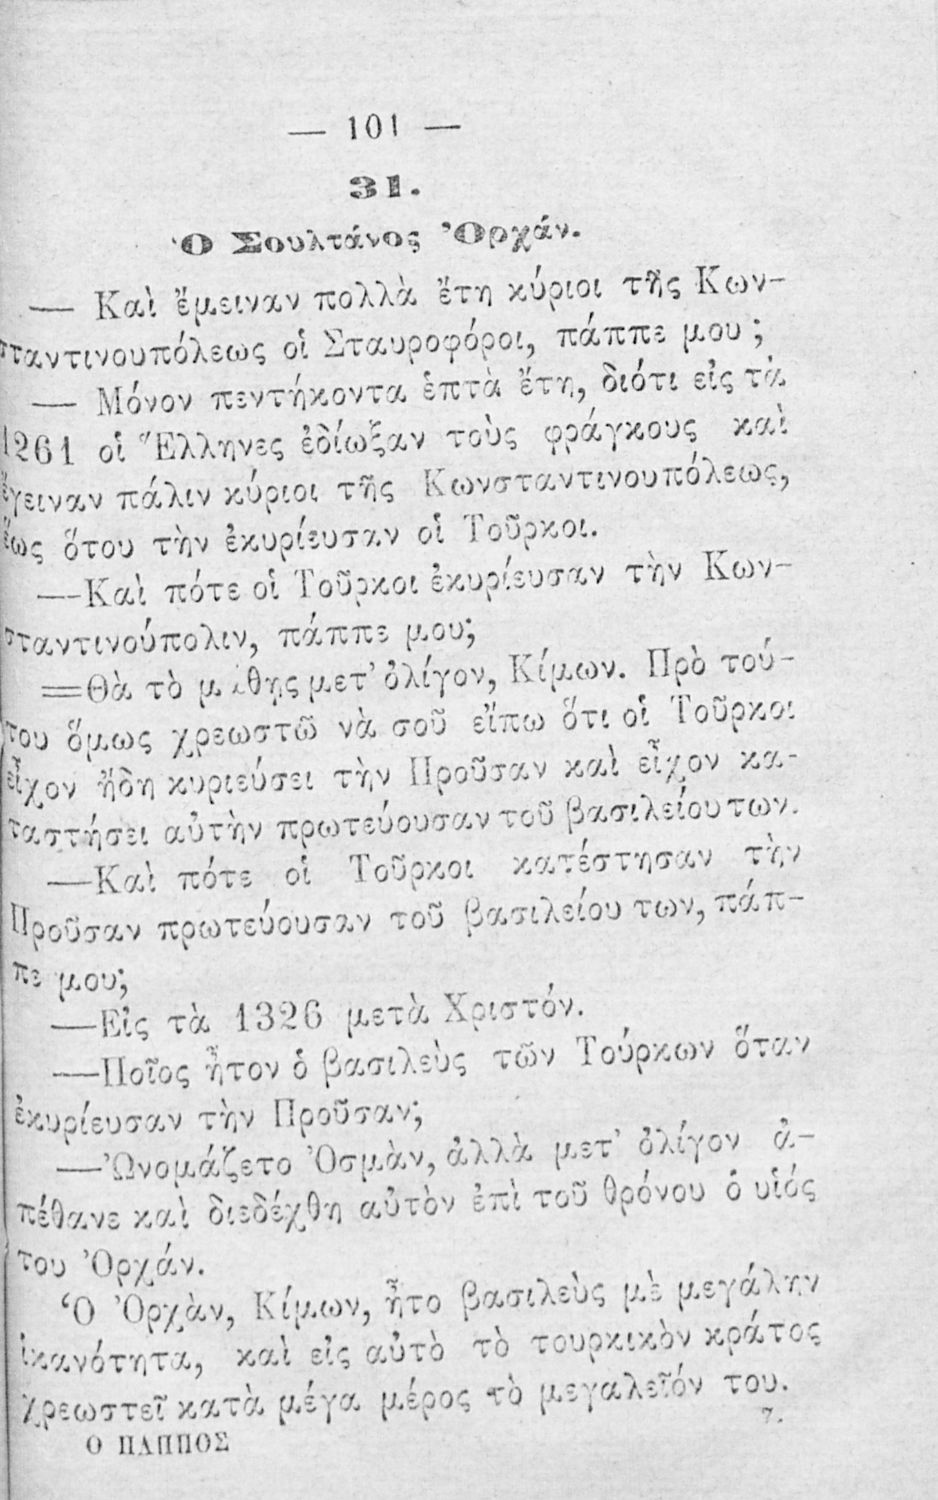 — 101 —
31.
Ὁ Σουλτάνος Ὀρχάν.
— Καὶ ἔμειναν πολλὰ ἔτη κύριοι τῆς Κων-
σταντινουπόλεως οἱ Σταυροφόροι, πάππε μου ;
— Μόνον πεντήκοντα ἑπτὰ ἔτη, διότι εἰς τὰ
1261 οἱ Ἕλληνες ἐδίωξαν τοὺς φράγκους καὶ
ἔγειναν πάλιν κύριοι τῆς Κωνσταντινουπόλεως,
ἕως ὅτου τὴν ἐκυρίευσαν οἱ Τοῦρκοι.
—Καὶ πότε οἱ Τοῦρκοι ἐκυρίευσαν τὴν Κων-
σταντινούπολιν, πάππε μου;
=Θὰ τὸ μάθῃς μετ' ὀλίγον, Κίμων. Πρὸ τού-
του ὅμως χρεωστῶ νὰ σοῦ εἴπω ὅτι οἱ Τοῦρκοι
εἶχον ἤδη κυριεύσει τὴν Προῦσαν καὶ εἶχον κα-
ταστήσει αὐτὴν πρωτεύουσαν τοῦ βασιλείου των.
—Καὶ πότε οἱ Τοῦρκοι κατέστησαν τὴν
Προῦσαν πρωτεύουσαν τοῦ βασιλείου των, πάπ-
πε μου;
—Εἰς τὰ 1326 μετὰ Χριστόν.
—Ποῖος ἦτον ὁ βασιλεὺς τῶν Τούρκων ὅταν
ἐκυρίευσαν τὴν Προῦσαν;
—Ὠνομάζετο Ὀσμὰν, ἀλλὰ μετ' ὀλίγον ἀ-
πέθανε καὶ διεδέχθη αὐτὸν ἐπὶ τοῦ θρόνου ὁ υἱός
του Ὀρχάν.
Ὁ Ὀρχὰν, Κίμων, ἦτο βασιλεὺς μὲ μεγάλην
ἱκανότητα, καὶ εἰς αὐτὸ τὸ τουρκικὸν κράτος
χρεωστεῖ κατὰ μέγα μέρος τὸ μεγαλεῖόν του.
Ο ΠΑΠΠΟΣ 7.